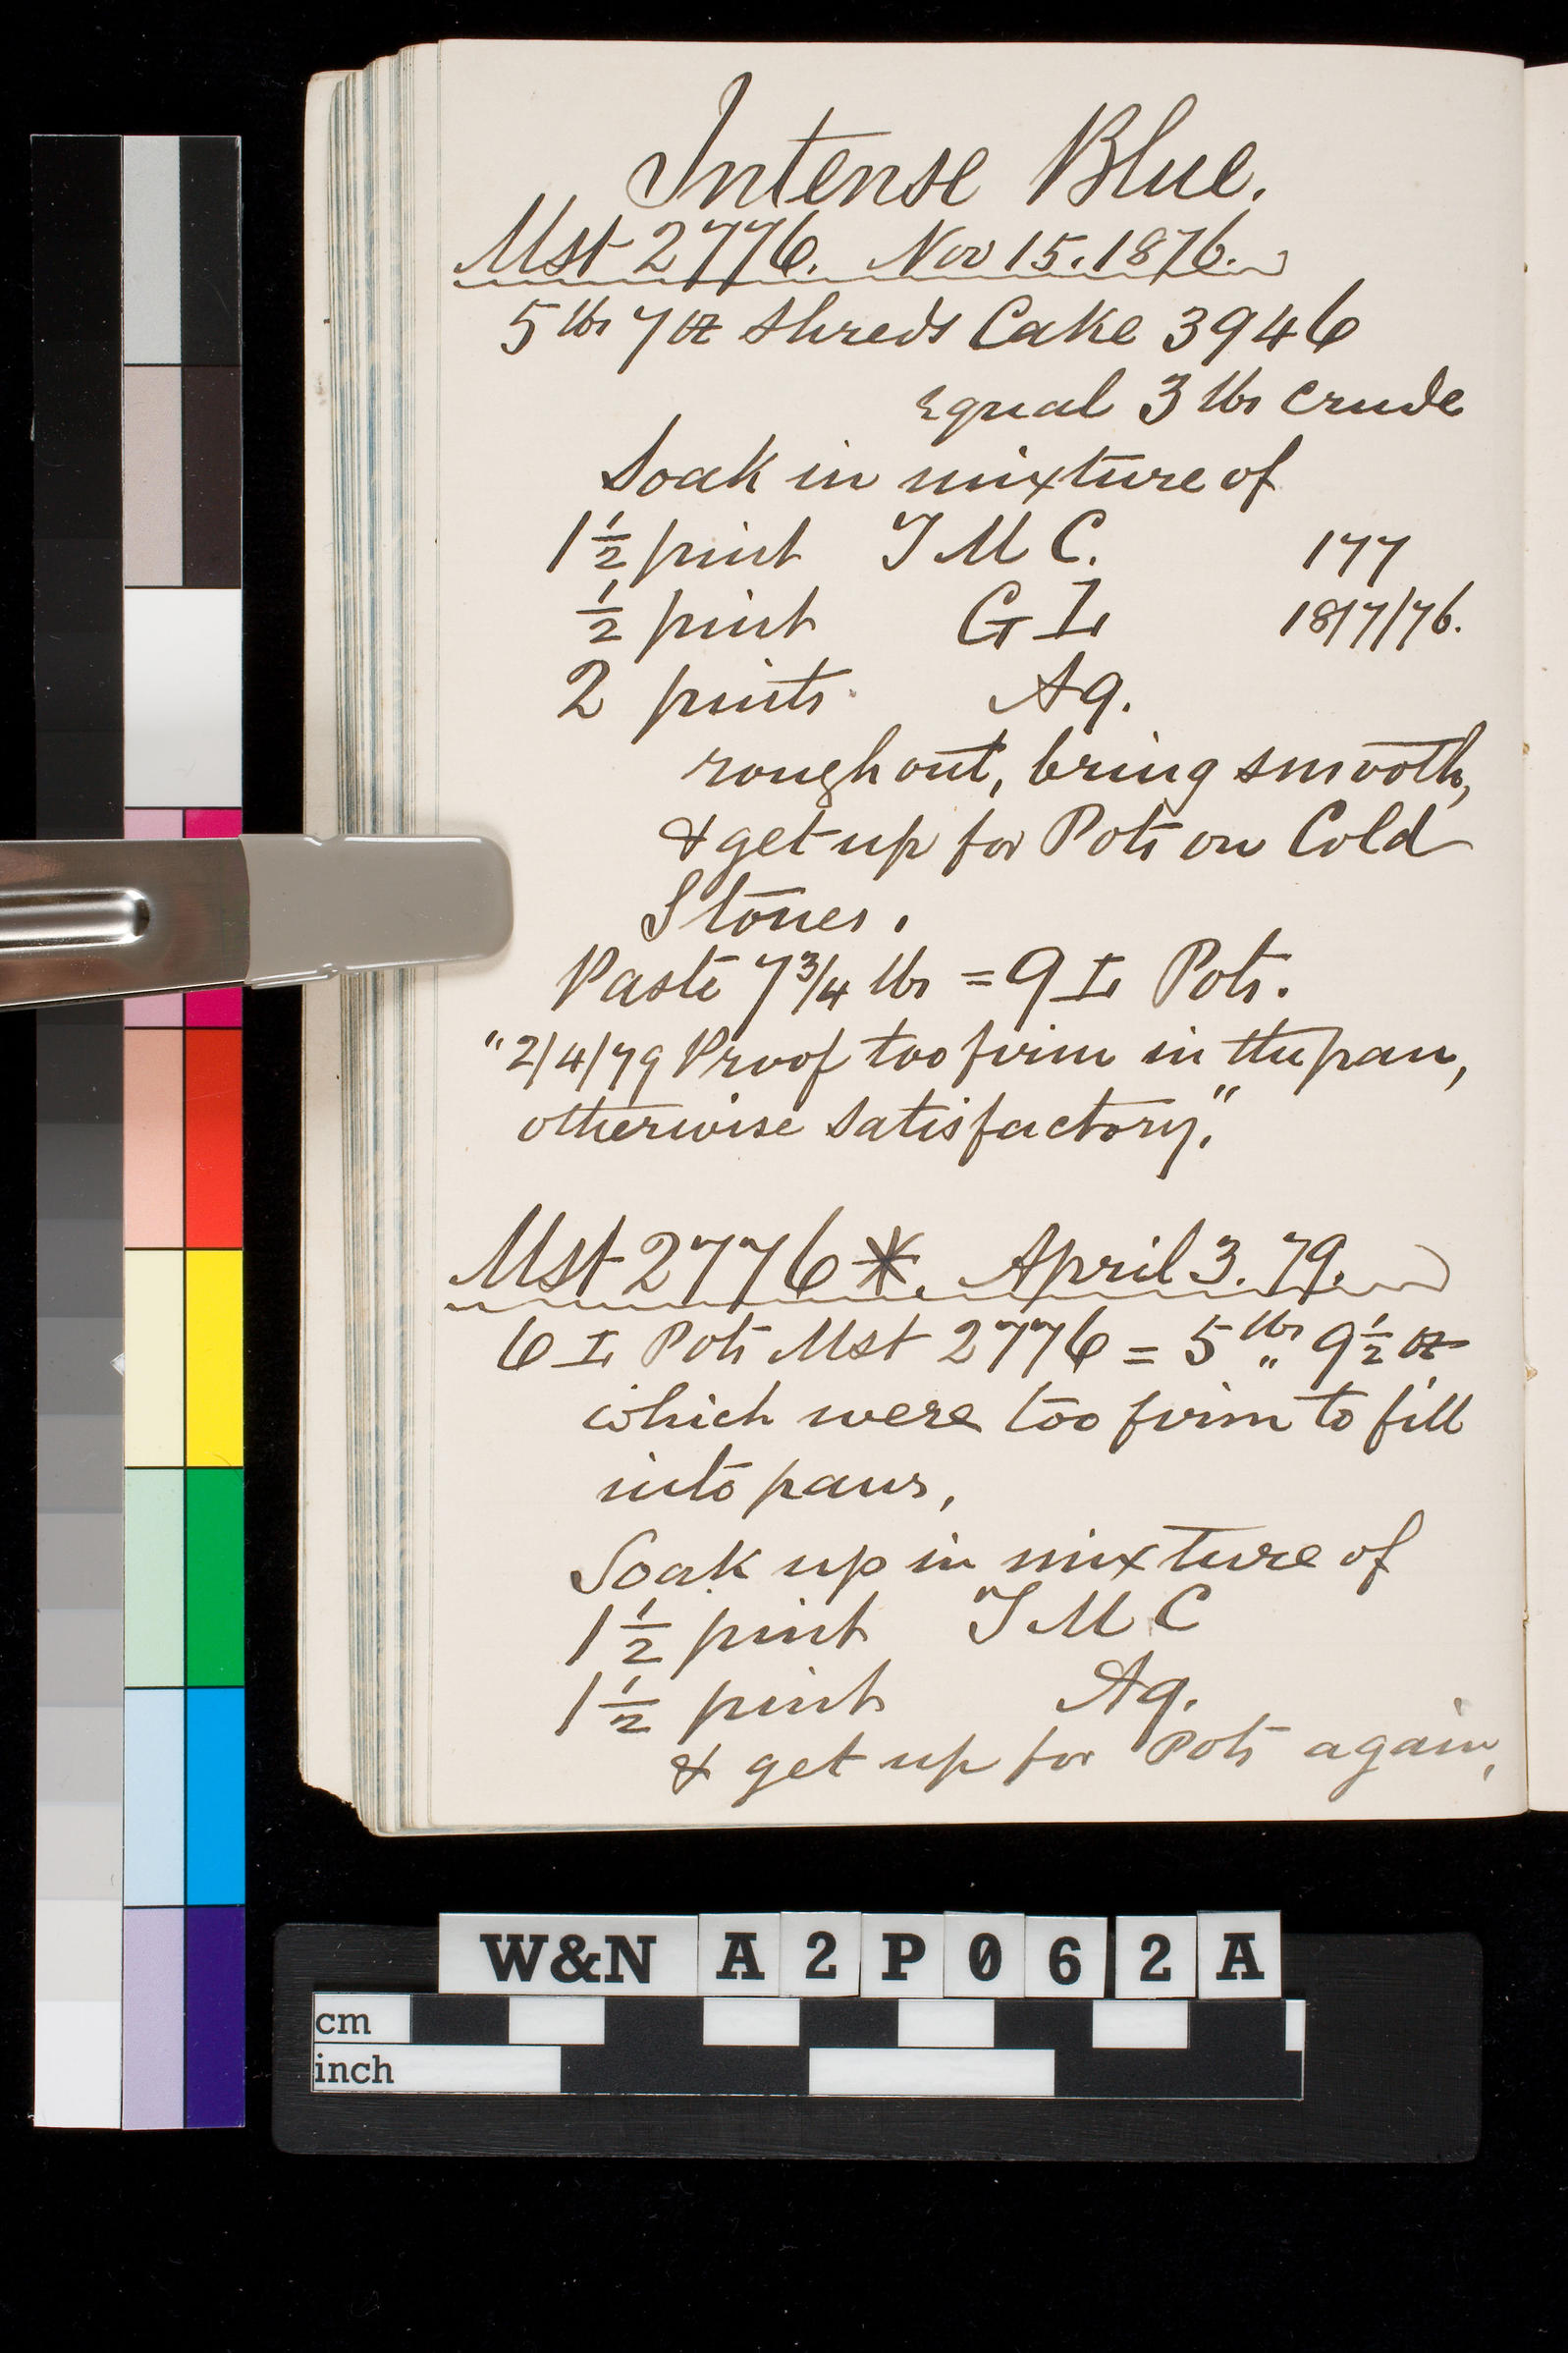 Intense Blue.
Mst 2776. Nov 15. 1876.
5 lbs 7 oz Shreds Cake 3946
equal 3 lbs crude
Soak in mixture of
1 1/2 pint T M C. 177
1/2 pint G L 18/7/76.
2 pints Aq.
rough out, bring smooth,
& get up for Pots on Cold
Stones.
Paste 7 3/4 lbs = 9 L Pots.
"2/4/79 Proof too firm in the pan,
otherwise satisfactory."
Mst 2776*. April 3. 79.
6 L Pots Mst 2776 = 5 lbs 9 1/2 oz
which were too firm to fill
into pans,
Soak up in mixture of
1 1/2 pint T M C
1 1/2 pint Aq.
& get up for Pots again,
W&N A2P062A
cm
inch